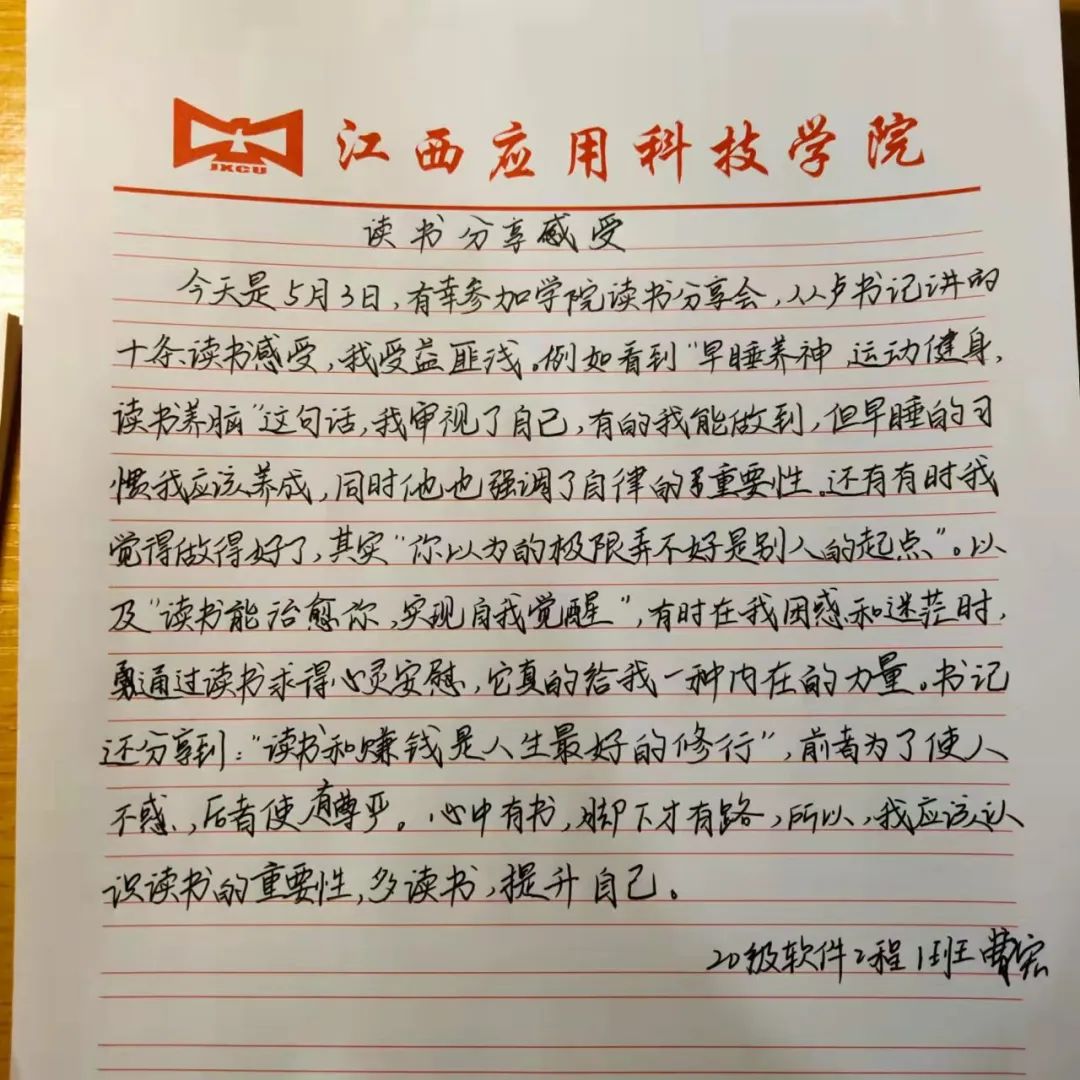 JXCU
江西应用科技学院
读书分享感受
今天是5月3日，有幸参加学院读书分享会，从卢书记讲的
十条读书感受，我受益匪浅。例如看到“早睡养神 运动健身，
读书养脑”这句话，我审视了自己，有的我能做到，但早睡的习
惯我应该养成，同时他也强调了自律的重要性。还有有时我
觉得做得好了，其实“你以为的极限弄不好是别人的起点”。以
及“读书能治愈你，实现自我觉醒”，有时在我困惑和迷茫时，
通过读书求得心灵安慰，它真的给我一种内在的力量。书记
还分享到：“读书和赚钱是人生最好的修行”，前者为了使人
不惑，后者使人有尊严。心中有书，脚下才有路，所以，我应该认
识读书的重要性，多读书，提升自己。
20级软件工程1班 曹宏